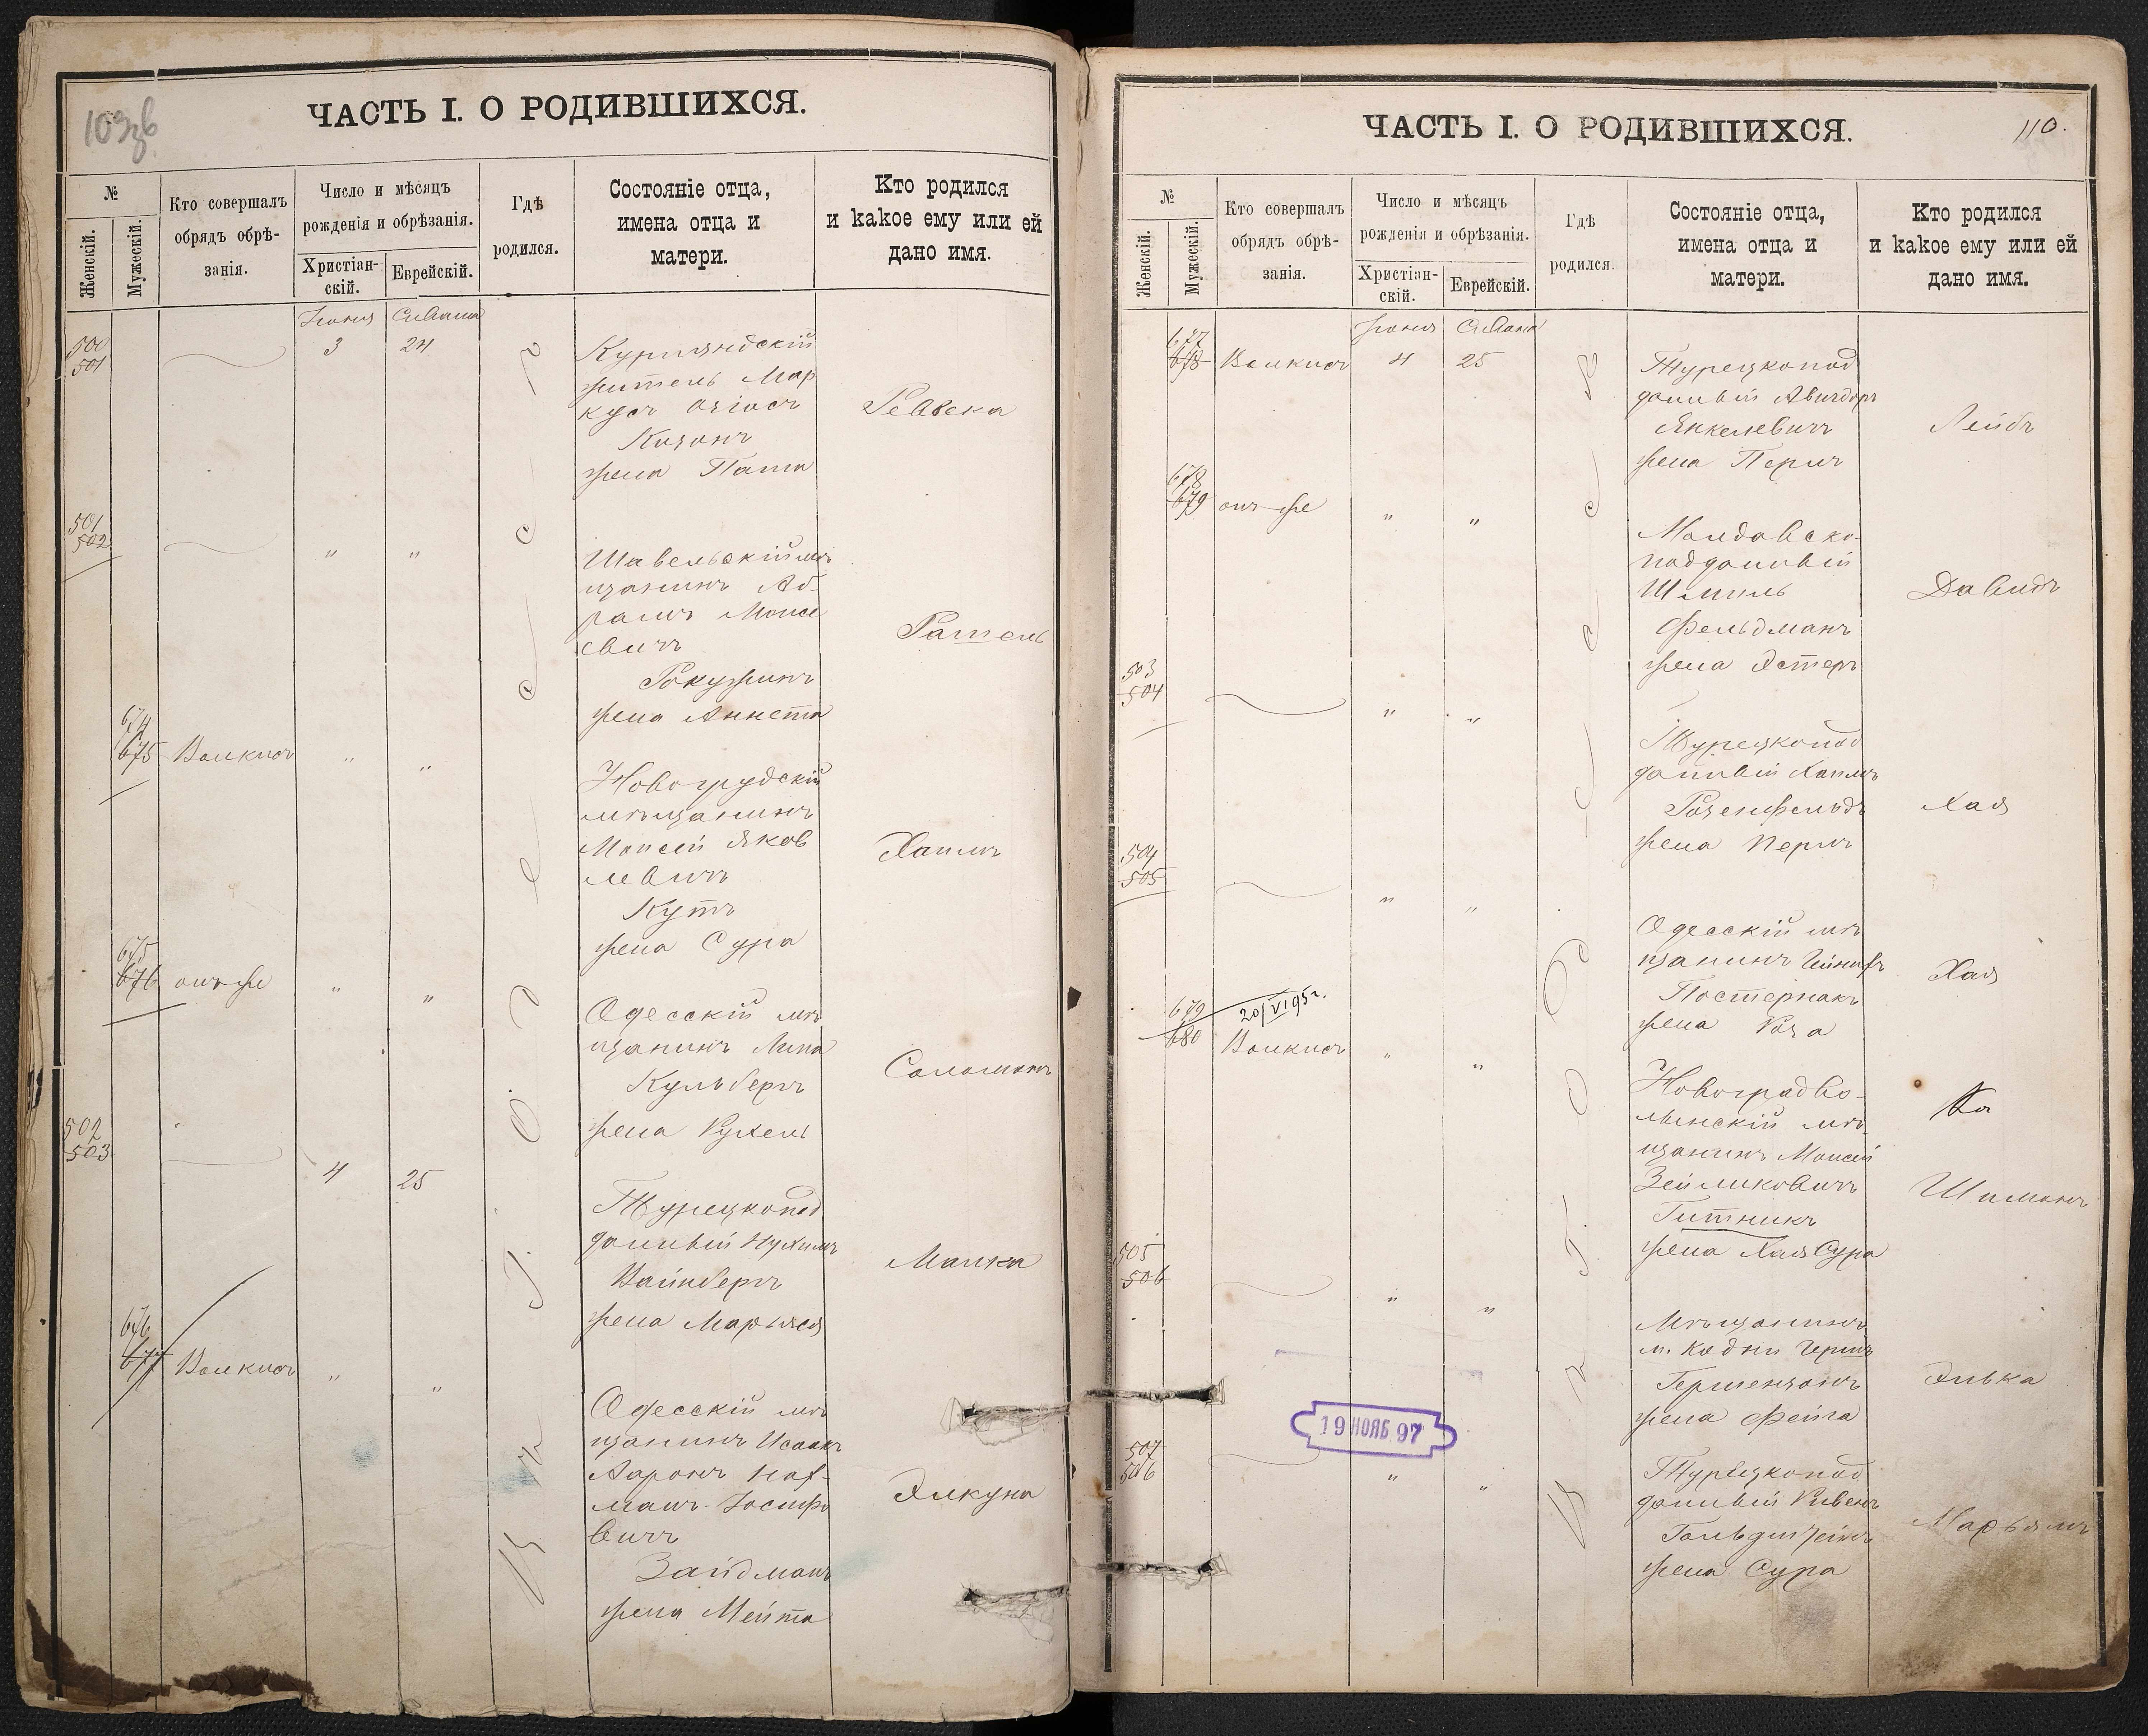 109 зв
ЧАСТЬ I. О РОДИВШИХСЯ.
№
Женскій.
Мужескій.
Кто совершалъ
обрядъ обрѣ-
занія.
Число и мѣсяцъ
рожденія и обрѣзанія.
Христіан-
скій.
Еврейскій.
Гдѣ
родился.
Состояніе отца,
имена отца и
матери.
Кто родился
и какое ему или ей
дано имя.
Іюня Сивана
500
501
3 24
Курляндскій
житель Мар
кусъ
Каганъ
жена
Ревека
501
502
" "
Шавельскій мѣ
щанинъ Аб-
рамъ Моисе
евичъ
Рокужинъ
жена Аннета
Рашель
674
675 Волкисъ " "
Новогрудскій
мѣщанинъ
Моисей Яков
левичъ
Кутъ
жена Сура
Хаимъ
675
676 онъ же " "
Одесскій мѣ
щанинъ Липа
Кульбергъ
жена Рухель
Соломонъ
502
503
4 25
Турецкопод
данный Нухимъ
Вайнбергъ
жена Марьяся
Малка
676
677 Волкисъ " "
Одесскій мѣ
щанинъ Исаакъ
Ааронъ
Іосифо
вичъ
Зайдманъ
жена Мейта
Элкуна
Въ г. Одессѣ
ЧАСТЬ I. О РОДИВШИХСЯ.
110.
№
Женскій.
Мужескій.
Кто совершалъ
обрядъ обрѣ-
занія.
Число и мѣсяцъ
рожденія и обрѣзанія.
Христіан-
скій.
Еврейскій.
Гдѣ
родился.
Состояніе отца,
имена отца и
матери.
Кто родился
и какое ему или ей
дано имя.
Іюня Сивана
677
678 Волкисъ 4 25
Турецкопод
данный Авигдоръ
Янкелевичъ
жена Перль
Лейбъ
678
679 онъ же " "
Молдавско-
подданный
Шмиль
Фельдманъ
жена Эстеръ
Давидъ
503
504
" "
Турецкопод
данный Хаимъ
Розенфельдъ
жена Перль
Хая
504
505
" "
Одесскій мѣ
щанинъ
Постернакъ
жена Роза
Хая
679
680
20/VI 95 г.
Волкисъ " "
Новоградво-
лынскій мѣ-
щанинъ Моисей
Зейликовичъ
Гитникъ
жена Хая Сура
Шимонъ
505
506
" "
Мѣщанинъ
м. Кодни Гершъ
Гершензонъ
жена Фейга
Элька
19 НОЯБ. 97
507
506
" "
Турецкопод
данный Рувенъ
жена Сура
Марьямъ
Въ г. Одессѣ